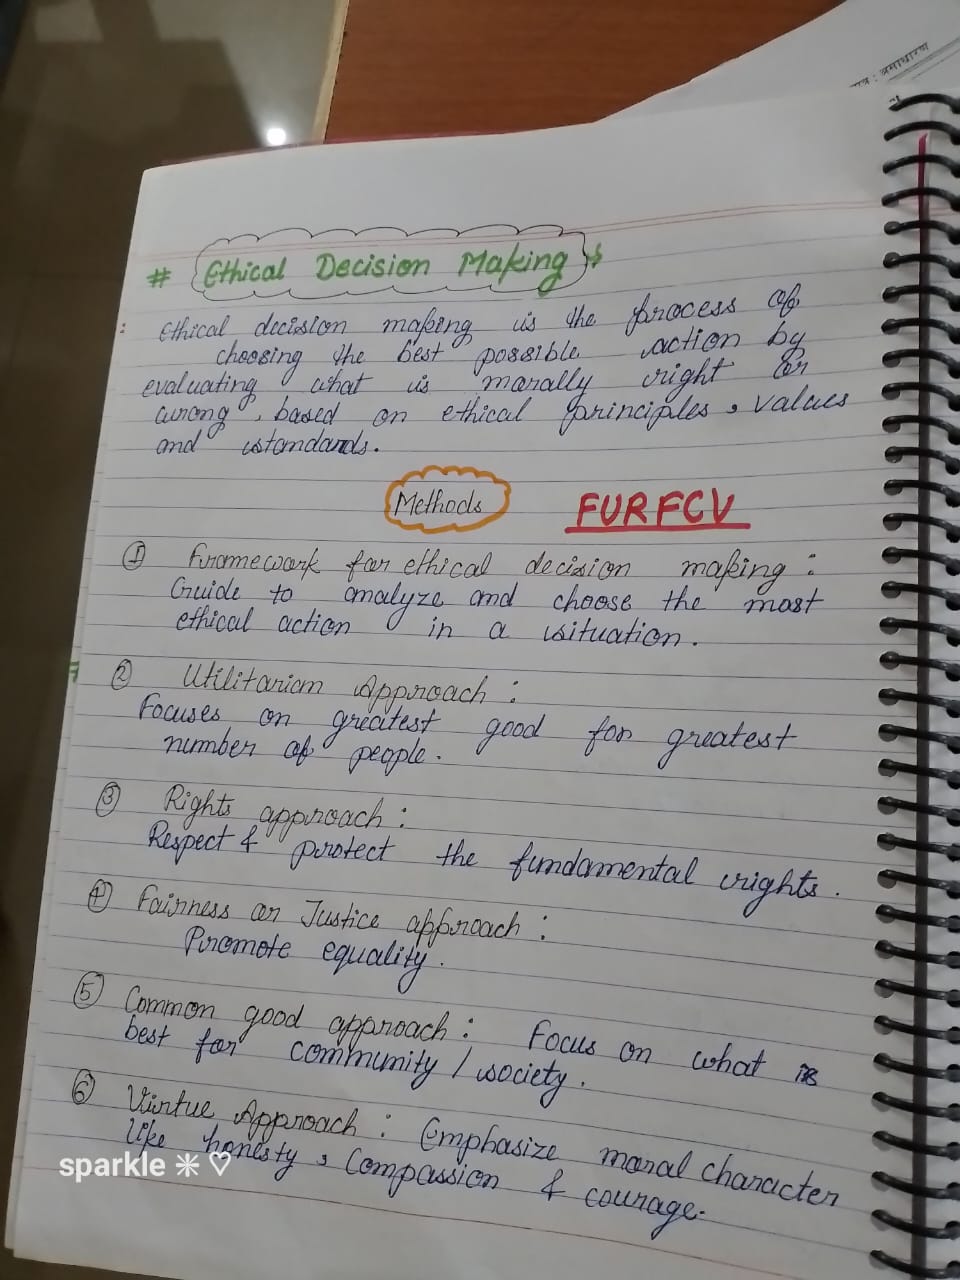 पात्र : असाधारण
# Ethical Decision Making
: Ethical decision making is the process of
choosing the best possible action by
evaluating what is morally right or
wrong, based on ethical principles, values
and standards.
Methods FURFCV
① Framework for ethical decision making :
Guide to analyze and choose the most
ethical action in a situation.
② Utilitarian Approach :
Focuses on greatest good for greatest
number of people.
③ Rights approach :
Respect & protect the fundamental rights.
④ Fairness or Justice approach :
Promote equality.
⑤ Common good approach : Focus on what is
best for community / society.
⑥ Virtue Approach : Emphasize moral character
like honesty, Compassion & courage.
sparkle ✳ ♡